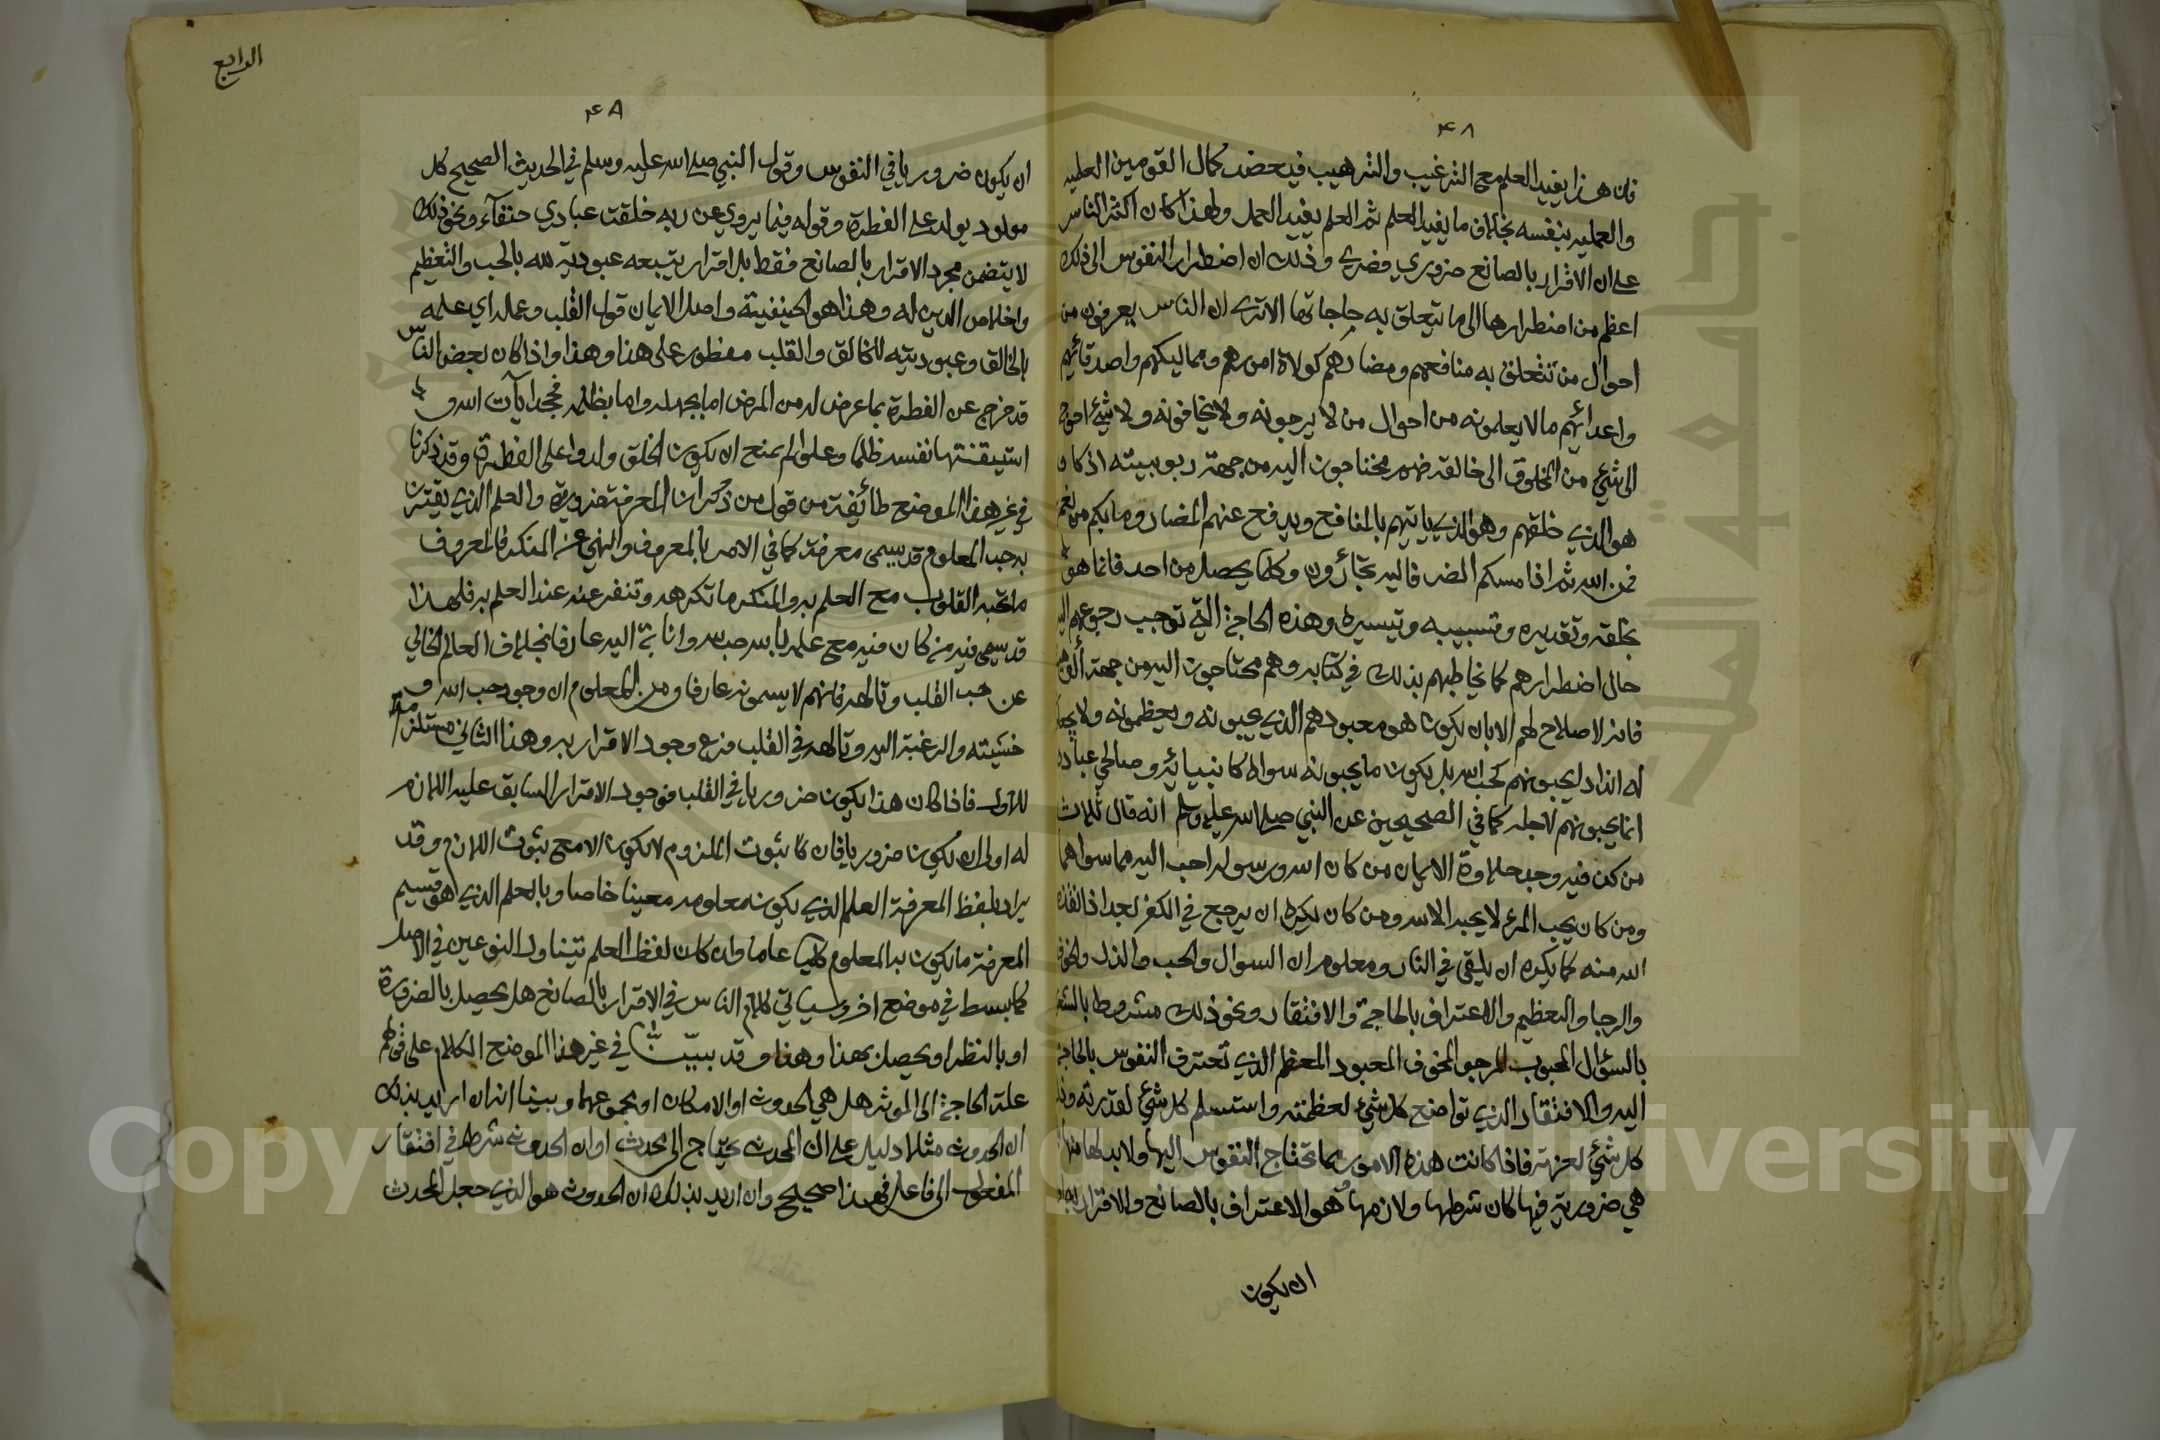 ٤٨
فان هذا يفيد العلم مع الترغيب والترهيب فيحض كمال القومين العلميه
والعمليه بنفسه بخلاف ما يفيد العلم ثم العلم يفيد العمل ولهذا كان اكثر الناس
على ان الاقرار بالصانع ضروري وضري وذلك ان اضطرار النفوس الى ذلك
اعظم من اضطرارها الى ما تتعلق به حاجاتها الا ترى ان الناس يعرفون من
احوال من تتعلق به منافعهم ومضارهم كولاة امرهم ومماليكهم واصدقائهم
واعدائهم ما لا يعلمونه من احوال من لا يرجونه ولا يخافونه ولا شيء احوج
الى شيء من المخلوق الى خالقه فهم محتاجون اليه من جهة ربوبيته اذ كان
هو الذي خلقهم وهو الذي ياتيهم بالمنافع ويدفع عنهم المضار وما بكم من نعمة
فمن الله ثم اذا مسكم الضر فاليه تجأرون وكلما يحصل من احد فانما هو
بخلقه وتقديره وتسبيبه وتيسيره وهذه الحاجة التي توجب رجوعهم اليه
حال اضطرارهم كما يخاطبهم بذلك في كتابه وهم محتاجون اليه من جهة
فانه لا صلاح لهم الا بان يكون هو معبودهم الذي يحبونه ويعظمونه ولا يجعلون
له اندادا يحبونهم كحب الله بل يكون ما يحبونه سواه كانبيائه وصالحي عباده
انما يحبونهم لاجله كما في الصحيحين عن النبي صلى الله عليه وسلم انه قال ثلاث
من كن فيه وجد حلاوة الايمان من كان الله ورسوله احب اليه مما سواهما
ومن كان يحب المرء لا يحبه الا لله ومن كان يكره ان يرجع في الكفر بعد اذ انقذه
الله منه كما يكره ان يلقى في النار ومعلوم ان السوال والحب والذل والخوف
والرجا والتعظيم والاعتراف بالحاجة والافتقار ونحو ذلك مشروط بالشعور
بالسؤال المحبوب المرجو المخوف المعبود المعظم الذي تعترف النفوس بالحاجة
اليه والافتقار الذي تواضع كل شيء لعظمته واستسلم كل شيء لقدرته وذل
كل شيء لعزته فاذا كانت هذه الامور مما تحتاج النفوس اليها ولا بد لها منها
هي ضرورية فيها كان شرطها ولازمها وهو الاعتراف بالصانع والاقرار به
ان يكون
الرابع
٤٨
ان يكون ضروريا في النفوس وقول النبي صلى الله عليه وسلم في الحديث الصحيح كل
مولود يولد على الفطرة وقوله فيما يروي عن ربه خلقت عبادي حنفآء ونحو ذلك
لا يتضمن مجرد الاقرار بالصانع فقط بل اقرار يتبعه عبودية لله بالحب والتعظيم
واخلاص الدين له وهذا هو الحنيفية واصل الايمان قول القلب وعمله اي علمه
بالخالق وعبوديته للخالق والقلب مفطور على هذا وهذا واذا كان بعض الناس
قد خرج عن الفطرة بما عرض له من المرض اما بجهله واما بظلمه فجحد آيات الله و
استيقنتها نفسه ظلما وعلوا لم يمنع ان يكون الخلق ولدوا على الفطرة وقد ذكرنا
في غير هذا الموضع طائفة من قول من ذكر ان المعرفة ضرورية والعلم الذي يقترن
به حب المعلوم قد يسمى معرفة كما في الامر بالمعروف والنهي عن المنكر فالمعروف
ما تحبه القلوب مع العلم به والمنكر ما تكرهه وتنفر عنه عند العلم به فلهذا
قد يسمى فيه من كان فيه مع علمه بالله حب لله وانابة اليه عارفا بخلاف العالم الخالي
عن حب القلب وتالهه فانهم لا يسمونه عارفا ومن المعلوم ان وجود حب الله و
خشيته والرغبة اليه وتالهه في القلب فرع وجود الاقرار به وهذا الثاني مستلزم
للاول فاذا كان هذا يكون ضروريا في القلب فوجود الاقرار السابق عليه اللازم
له اولى ان يكون ضروريا فان ثبوت الملزوم لا يكون الا مع ثبوت اللازم وقد
يراد بلفظ المعرفة العلم الذي يكون معلومه معينا خاصا وبالعلم الذي هو قسيم
المعرفة ما يكون به المعلوم كليا عاما وان كان لفظ العلم يتناول النوعين في الاصل
كما بسط في موضع اخر وسياتي كلام الناس في الاقرار بالصانع هل يحصل بالضرورة
او بالنظر او يحصل بهذا وهذا وقد بيّنّا في غير هذا الموضع الكلام على قولهم
علة الحاجة الى الموثر هل هي الحدوث او الامكان او مجموعهما وبينا انه ان اريد بذلك
ان الحدوث مثلا دليل على ان المحدث يحتاج الى محدث او ان الحدوث شرط في افتقار
المفعول الى فاعل فهذا صحيح وان اريد بذلك ان الحدوث هو الذي جعل المحدث
Copyright © King Saud University